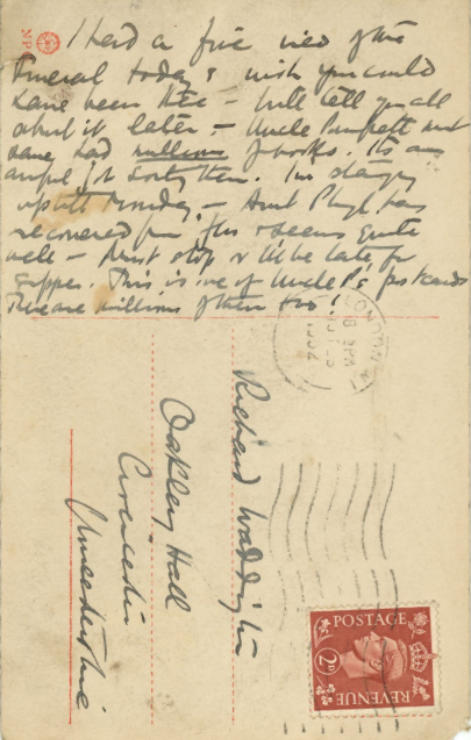 NPG
I had a fine view of the
Funeral today & wish you could
have been there – will tell you all
about it later. – Uncle must
have had millions of books. Its an
awful job sorting them. I'm staying
up till Monday. – Aunt Phyl has
recovered from flu & seems quite
well – Must stop or I'll be late for
supper. This is one of Uncle P's postcards
There are millions of them too!
LONDON W.1
8 PM
1952
Richard Waddington
Oakley Hall
Cirencester
Gloucestershire
POSTAGE
2D
REVENUE